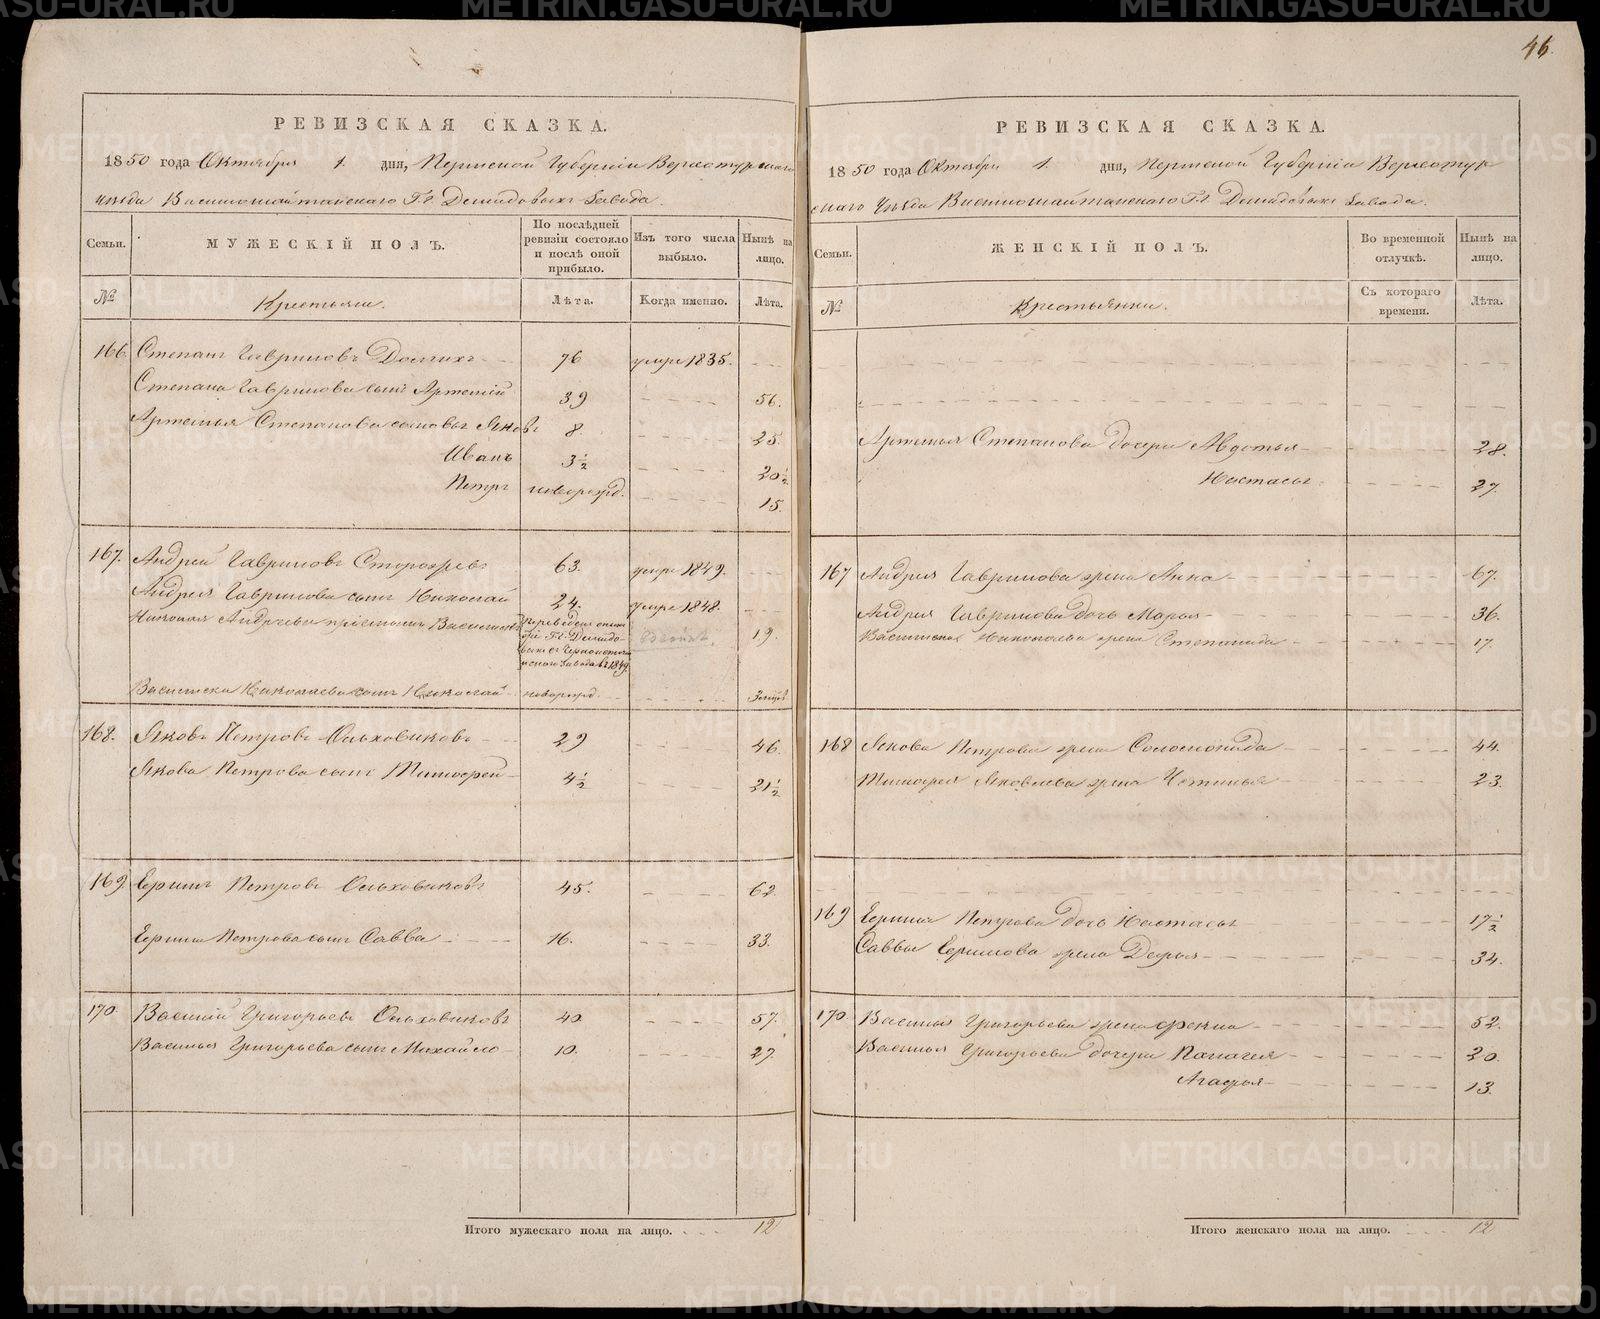 46.
РЕВИЗСКАЯ СКАЗКА.
1850 года Октября 1. дня, Пермской Губернiи Верхотурскаго
уѣзда Висимошайтанскаго Гг. Демидовыхъ Завода.
Семьи.
МУЖЕСКIЙ ПОЛЪ.
По послѣдней ревизiи состояло и послѣ оной прибыло.
Изъ того числа выбыло.
Нынѣ на лицо.
№
Крестьяне.
Лѣта.
Когда именно.
Лѣта.
166. Степанъ Гавриловъ Долгихъ 76 умре 1835.
Степана Гаврилова сынъ Артемiй 39 56.
Артемья Степанова сыновья Яковъ 8. 25.
Иванъ 3½ 20½
Петръ новорожд. 15.
167. Андрей Гавриловъ Сторожевъ 63. умре 1849.
Андрея Гаврилова сынъ Николай 24. умре 1848.
Николая Андреева прiемышъ Василискъ 19.
Гг. Демидовыхъ съ Черноисточинскаго Завода въ 1849
Василиска Николаева сынъ Николай новорожд.
168. Яковъ Петровъ Ольховиковъ 29 46.
Якова Петрова сынъ Тимофей 4½ 21½
169. Ермилъ Петровъ Ольховиковъ 45. 62.
Ермила Петрова сынъ Савва 16. 33.
170. Василiй Григорьевъ Ольховиковъ 40. 57.
Василья Григорьева сынъ Михайло 10. 27.
Итого мужескаго пола на лицо. 12
РЕВИЗСКАЯ СКАЗКА.
1850 года Октября 1. дня, Пермской Губернiи Верхотур
скаго Уѣзда Висимошайтанскаго Гг. Демидовыхъ Завода.
Семьи.
ЖЕНСКIЙ ПОЛЪ.
Во временной отлучкѣ.
Нынѣ на лицо.
№
Крестьянки.
Съ котораго времени.
Лѣта.
Артемья Степанова дочери Авдотья 28.
Настасья 27.
167 Андрея Гаврилова жена Анна 67.
Андрея Гаврилова дочь Марья 36.
Василиска Николаева жена Степанида 17.
168 Якова Петрова жена Соломонида 44.
Тимофея Яковлева жена 23.
169 Ермила Петрова дочь Настасья 17½
Саввы Ермилова жена Дарья 34.
170. Василья Григорьева жена Фекла 52.
Василья Григорьева дочери Палагея 20.
Агафья 13.
Итого женскаго пола на лицо. 12
METRIKI.GASO-URAL.RU